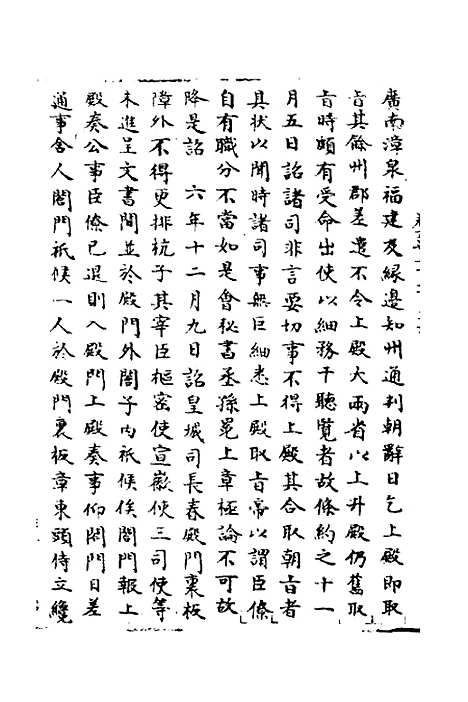 廣南漳泉福建及緣邊知州通判朝辭日乞上殿即取
旨其餘州郡差遣不令上殿大兩省以上升殿仍舊取
旨時頗有受命出使以細務干聽覽者故條約之十一
月五日詔諸司非言要切事不得上殿其合取朝旨者
具狀以聞時諸司事無巨細悉上殿取旨帝以謂臣僚
自有職分不當如是會秘書丞孫冕上章極論不可故
降是詔　六年十二月九日詔皇城司長春殿門裏板
障外不得更排杭子其宰臣樞密使宣徽使三司使等
未進呈文書間並於殿門外閤子內祇候俟閤門報上
殿奏公事臣僚已退則入殿門上殿奏事仰閤門日差
通事舍人閤門祇候一人於殿門裏板章東頭侍立纔